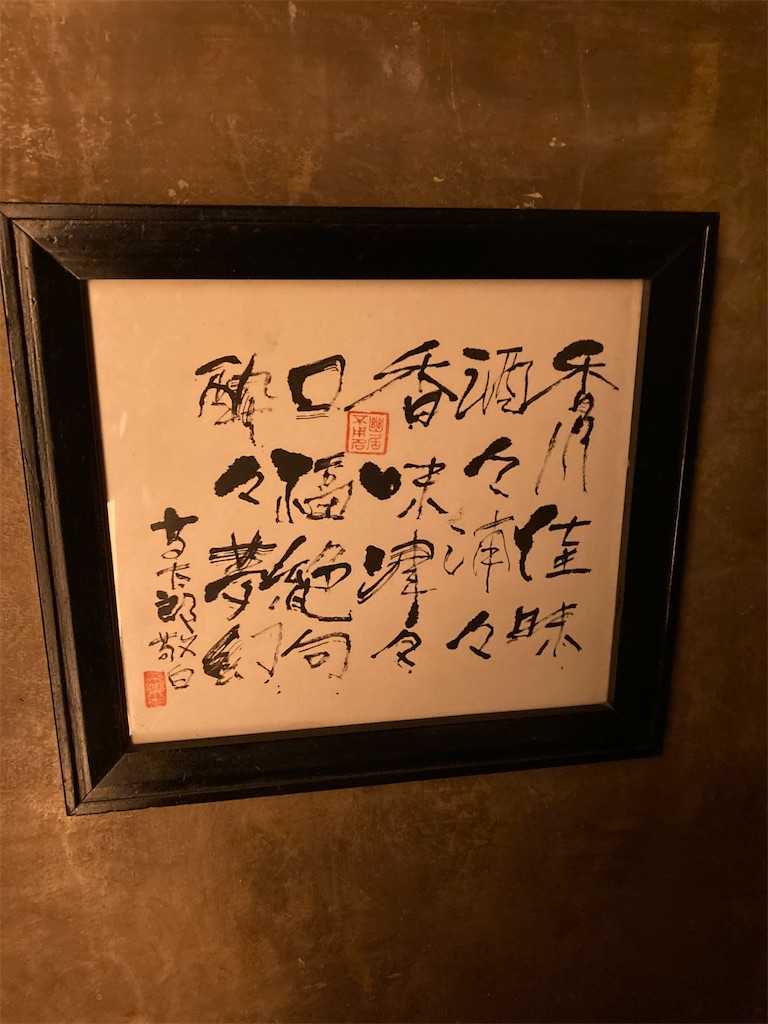 香月佳味
酒々浦々
香味津々
口福絶句
酔々夢幻
敬白